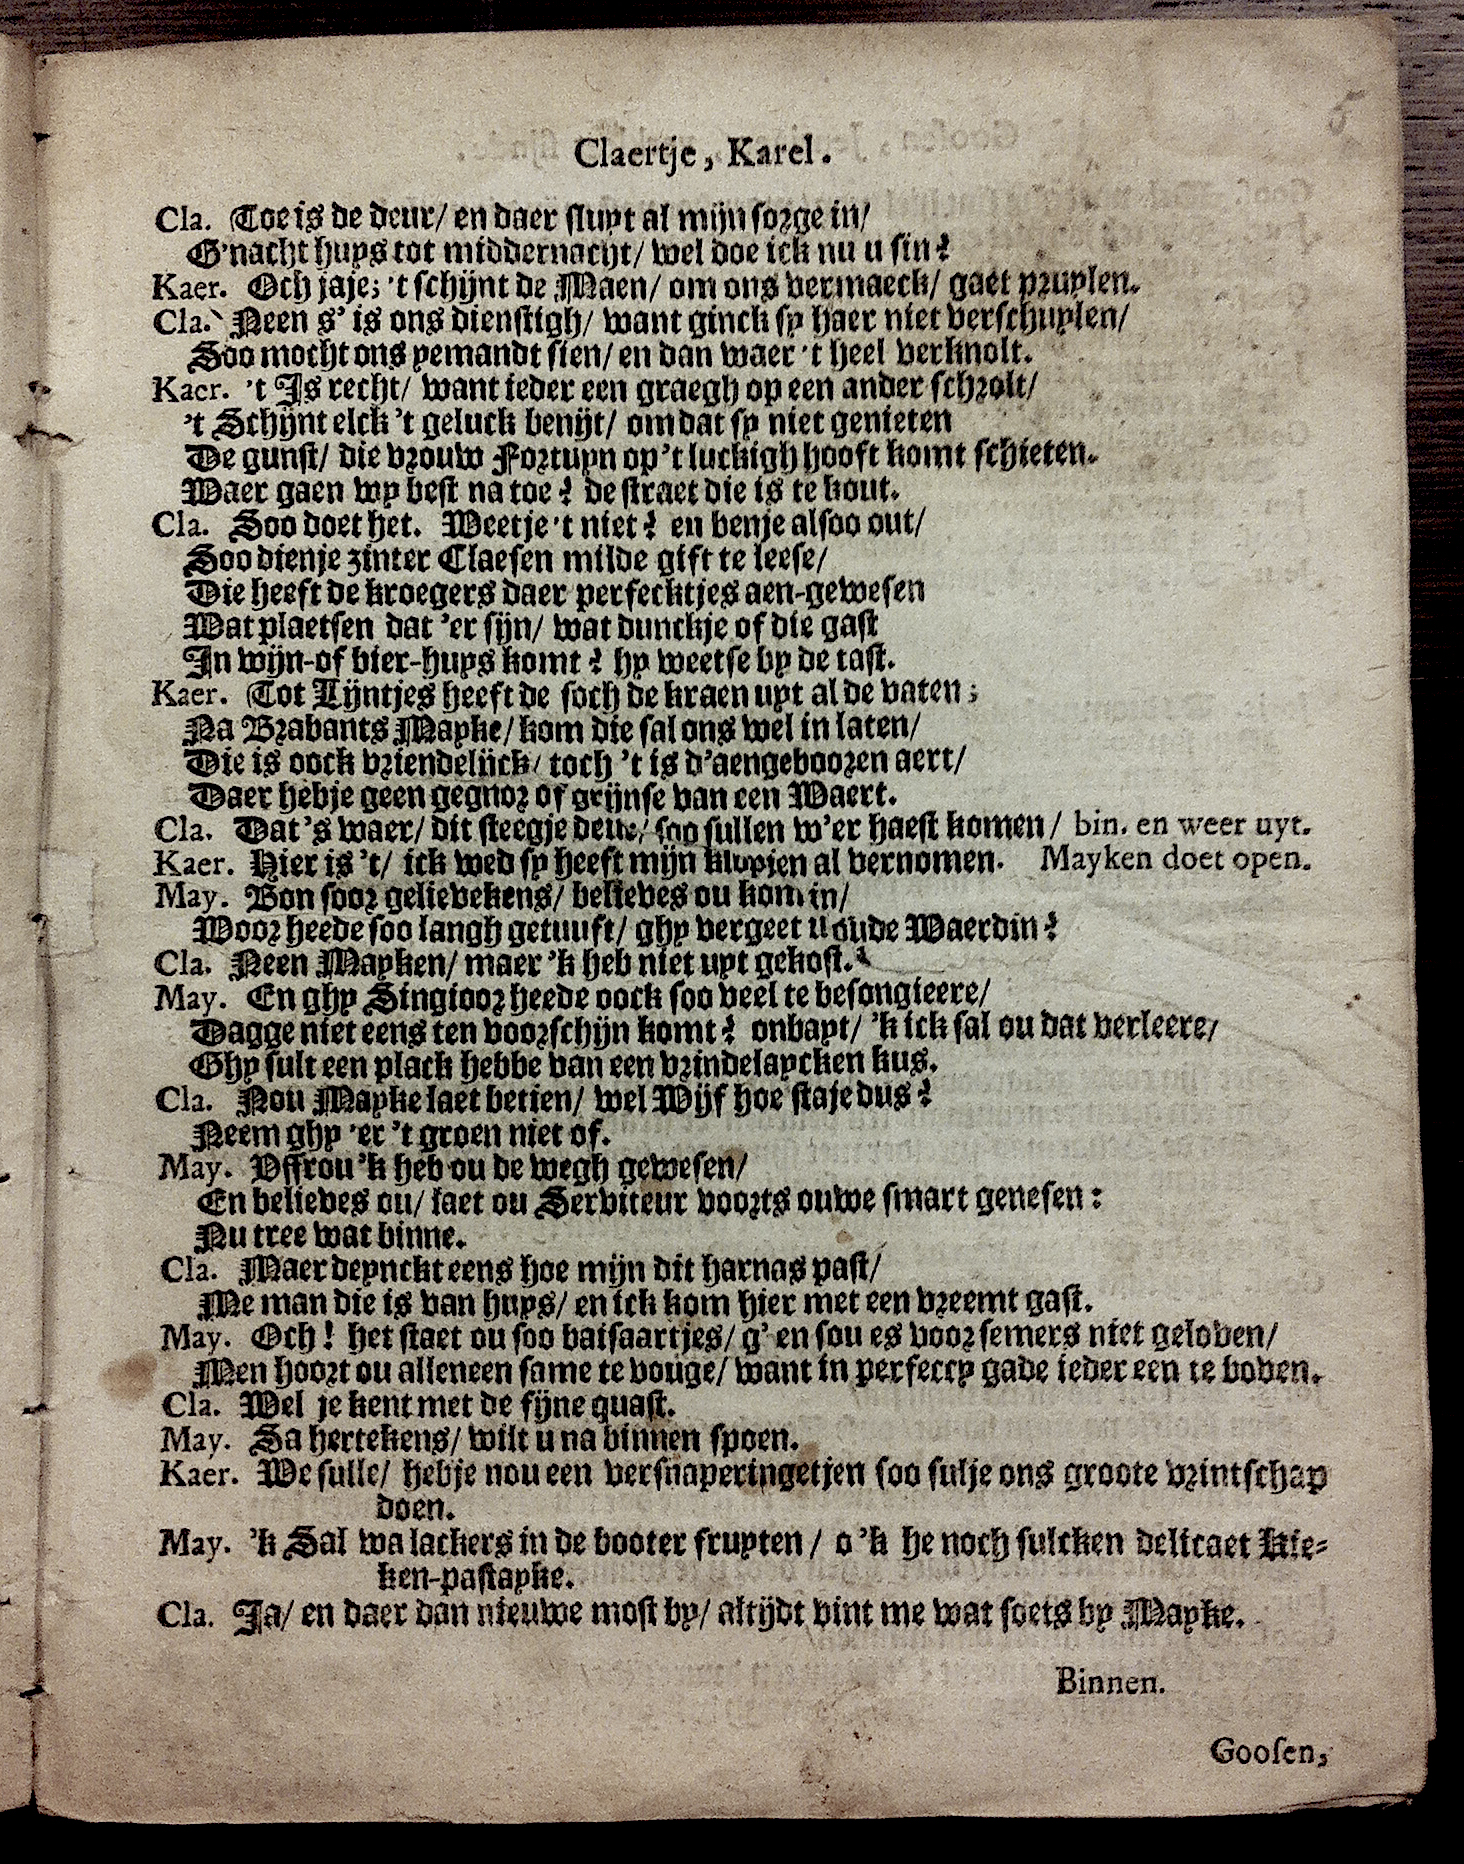 5
Claertje, Karel.
Cla. Toe is de deur/ en daer sluyt al mijn sorge in/
G'nacht huys tot middernacht/ wel doe ick nu u sin?
Kaer. Och jaje; 't schijnt de Maen/ om ons vermaeck/ gaet pruylen.
Cla. Neen s' is ons dienstigh/ want ginck sy haer niet verschuylen/
Soo mocht ons yemandt sien/ en dan waer 't heel verknolt.
Kaer. 't Is recht/ want ieder een graegh op een ander schrolt/
't Schijnt elck 't geluck benijt/ om dat sy niet genieten
De gunst/ die vrouw Fortuyn op 't luckigh hooft komt schieten.
Waer gaen wy best na toe? de straet die is te kout.
Cla. Soo doet het. Weetje 't niet? en benje alsoo out/
Soo dienje zinter Claesen milde gift te leese/
Die heeft de kroegers daer perfecktjes aen-gewesen
Wat plaetsen dat 'er sijn/ wat dunckje of die gast
In wijn-of bier-huys komt? hy weetse by de tast.
Kaer. Tot Lijntjes heeft de soch de kraen uyt al de vaten;
Na Brabants Mayke/ kom die sal ons wel in laten/
Die is oock vriendelijck/ toch 't is d'aengebooren aert/
Daer hebje geen gegnor of grijnse van een Waert.
Cla. Dat 's waer/ dit steegje deur/ soo sullen w'er haest komen/ bin. en weer uyt.
Kaer. Hier is 't/ ick wed sy heeft mijn kloppen al vernomen. Mayken doet open.
May. Bon soor gelievekens/ believes ou kom in/
Woor heede soo langh getuuft/ ghy vergeet u oude Waerdin?
Cla. Neen Mayken/ maer 'k heb niet uyt gekost.
May. En ghy Singioor heede oock soo veel te besongieere/
Dagge niet eens ten voorschijn komt? onbayt/ 'k ick sal ou dat verleere/
Ghy sult een plack hebbe van een vrindelaycken kus.
Cla. Nou Mayke laet betien/ wel Wijf hoe staje dus?
Neem ghy 'er 't groen niet of.
May. Yffrou 'k heb ou de wegh gewesen/
En believes ou/ laet ou Serviteur voorts ouwe smart genesen:
Nu tree wat binne.
Cla. Maer deynckt eens hoe mijn dit harnas past/
Me man die is van huys/ en ick kom hier met een vreemt gast.
May. Och! het staet ou soo baisaartjes/ g' en sou es voor semers niet geloven/
Men hoort ou alleneen same te vouge/ want in perfeccy gade ieder een te boven.
Cla. Wel je kent met de fijne quast.
May. Sa hertekens/ wilt u na binnen spoen.
Kaer. We sulle/ hebje nou een versnaperingetjen soo sulje ons groote vrintschap
doen.
May. 'k Sal wa lackers in de booter fruyten/ o 'k he noch sulcken delicaet Kie-
ken-pastayke.
Cla. Ja/ en daer dan nieuwe most by/ altijdt vint me wat soets by Mayke.
Binnen.
Goosen,